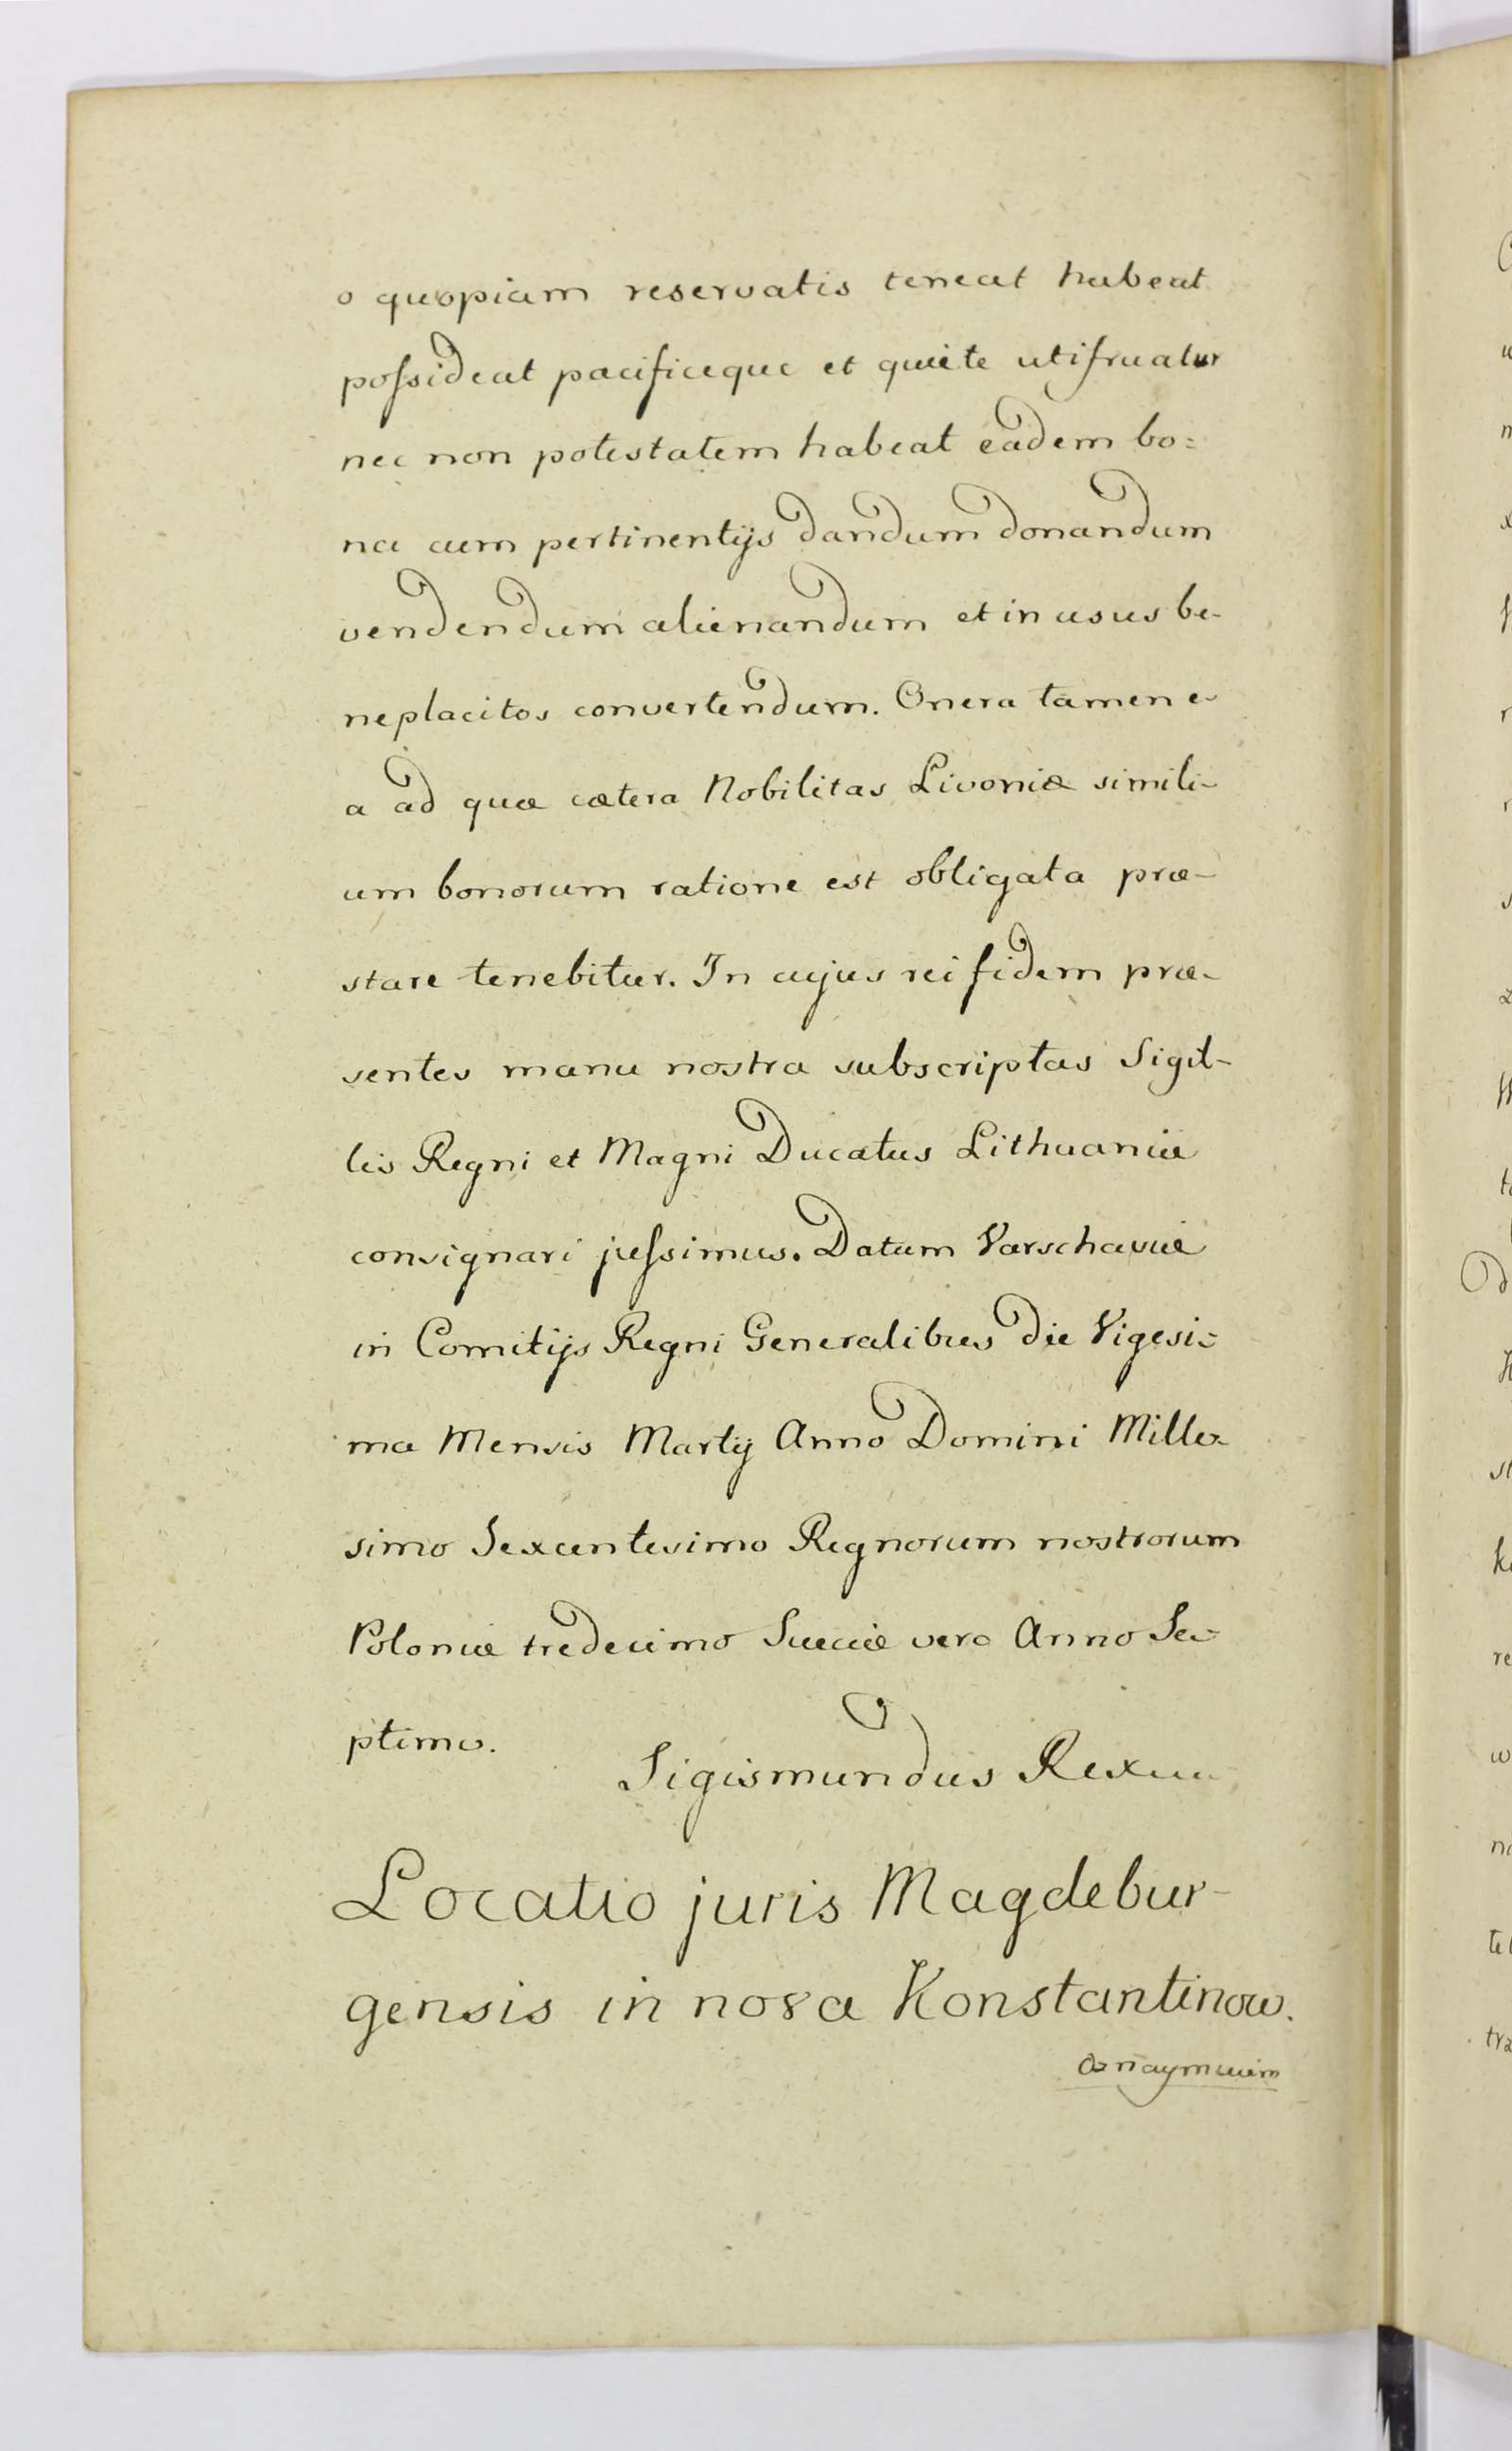 o quopiam reservatis teneat habeat
possideat pacificeque et quiete utifruatur
nec non potestatem habeat eadem bo=
na cum pertinentijs dandum donandum
vendendum alienandum et in usus be-
neplacitos convertendum. Onera tamen e-
a ad quæ cætera Nobilitas Livoniæ simili-
um bonorum ratione est obligata præ-
stare tenebitur. In cujus rei fidem præ-
sentes manu nostra subscriptas Sigil-
lis Regni et Magni Ducatus Lithuaniæ
consignari jussimus. Datum Varschaviæ
in Comitijs Regni Generalibus die Vigesi=
ma Mensis Martij Anno Domini Mille-
simo Sexcentesimo Regnorum nostrorum
Poloniæ tredecimo Sueciæ vero Anno Se-
ptimo.
Sigismundus Rex
Locatio juris Magdebur-
gensis in nova Konstantinow.
Oznaymuiem